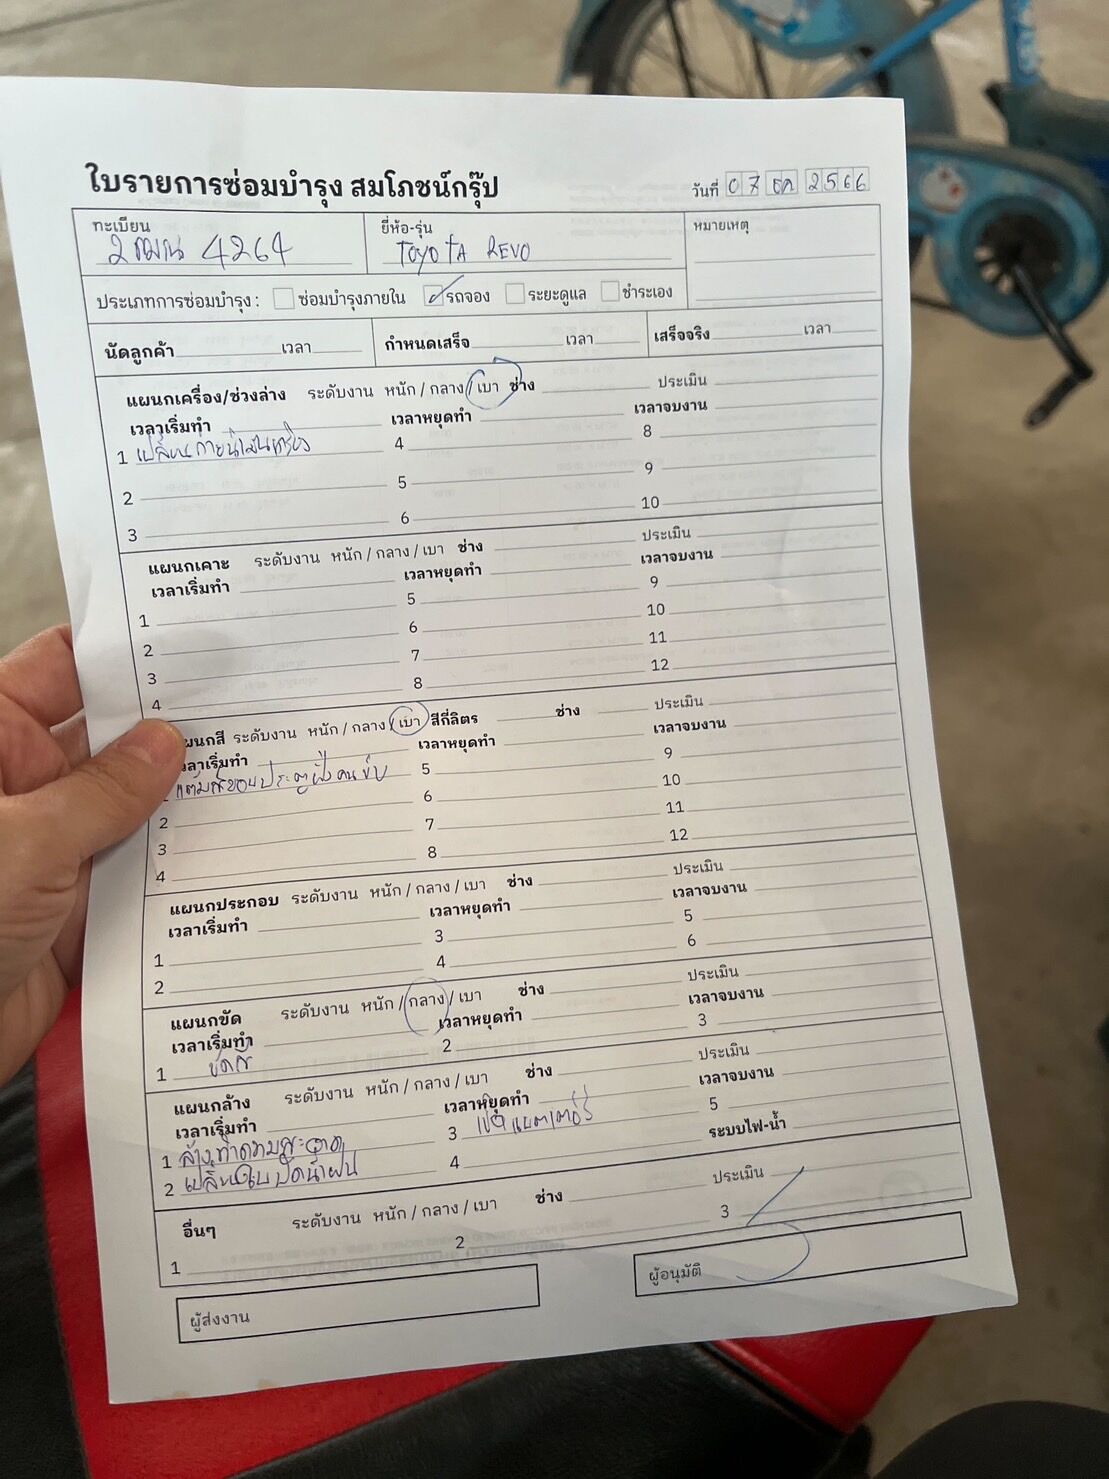 ใบรายการซ่อมบำรุง สมโภชน์กรุ๊ป
วันที่ 07 ธค 2566
ทะเบียน
2ฒน 4264
ยี่ห้อ-รุ่น
TOYOTA REVO
หมายเหตุ
ประเภทการซ่อมบำรุง : ซ่อมบำรุงภายใน รถจอง ระยะดูแล ชำระเอง
นัดลูกค้า เวลา กำหนดเสร็จ เวลา เสร็จจริง เวลา
แผนกเครื่อง/ช่วงล่าง ระดับงาน หนัก / กลาง / เบา ช่าง ประเมิน
เวลาเริ่มทำ เวลาหยุดทำ เวลาจบงาน
1 เปลี่ยนถ่ายน้ำมันเครื่อง 4 8
2 5 9
3 6 10
แผนกเคาะ ระดับงาน หนัก / กลาง / เบา ช่าง ประเมิน
เวลาเริ่มทำ เวลาหยุดทำ เวลาจบงาน
1 5 9
2 6 10
3 7 11
4 8 12
ผนกสี ระดับงาน หนัก / กลาง / เบา สีกี่ลิตร ช่าง ประเมิน
วลาเริ่มทำ เวลาหยุดทำ เวลาจบงาน
แต้มสีขอบประตูฝั่งคนขับ 5 9
2 6 10
3 7 11
4 8 12
แผนกประกอบ ระดับงาน หนัก / กลาง / เบา ช่าง ประเมิน
เวลาเริ่มทำ เวลาหยุดทำ เวลาจบงาน
1 3 5
2 4 6
แผนกขัด ระดับงาน หนัก / กลาง / เบา ช่าง ประเมิน
เวลาเริ่มทำ เวลาหยุดทำ เวลาจบงาน
1 ขัดสี 2 3
แผนกล้าง ระดับงาน หนัก / กลาง / เบา ช่าง ประเมิน
เวลาเริ่มทำ เวลาหยุดทำ เวลาจบงาน
1 ล้างทำความสะอาด 3 แบตเตอรี่ 5
2 เปลี่ยนใบปัดน้ำฝน 4 ระบบไฟ-น้ำ
อื่นๆ ระดับงาน หนัก / กลาง / เบา ช่าง ประเมิน
1 2 3
ผู้ส่งงาน ผู้อนุมัติ